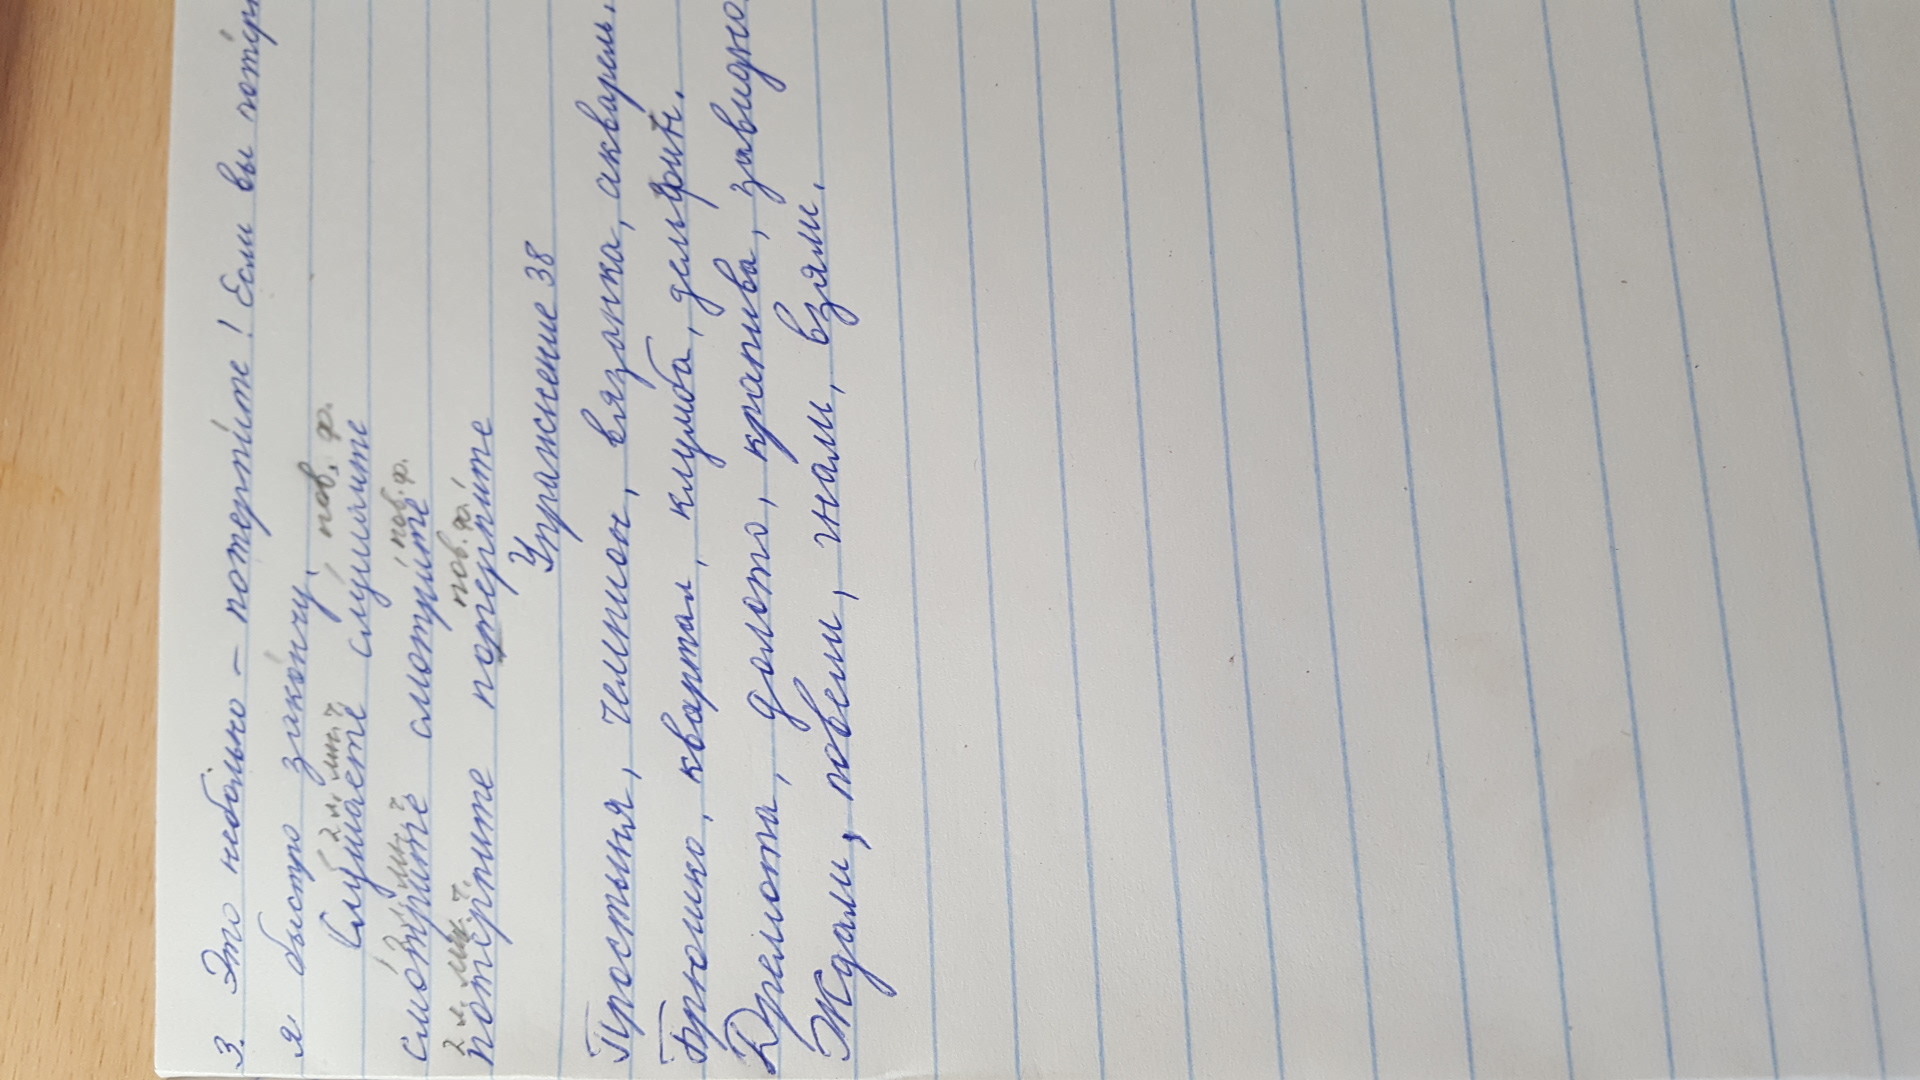 3. Это небольно – потерпи́те! Если вы поте́рп
я быстро зако́нчу.
2 л. мн. ч. пов. ф.
Слу́шаете слу́шайте
2 л. мн. ч. пов. ф.
смо́трите смотри́те
2 л. мн. ч. пов. ф.
поте́рпите потерпи́те
Упражнение 38
Простыня, чемпион, вязанка, акварель.
Брюшко, квартал, клумба, дельфин.
Дремота, долото, крапива, завидно.
Ждали, повели, гнали, взяли.